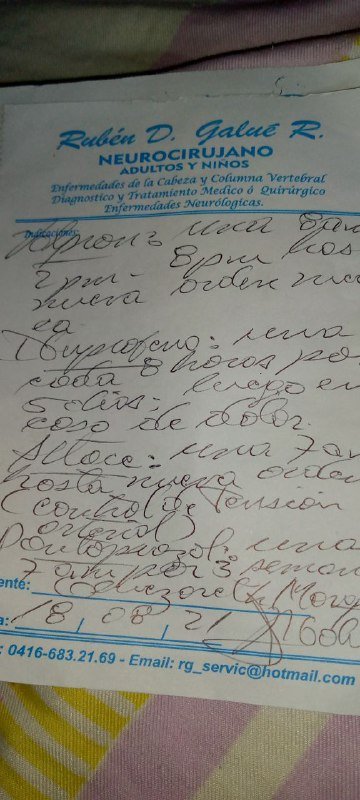 Rubén D. Galué R.
NEUROCIRUJANO
ADULTOS Y NIÑOS
Enfermedades de la Cabeza y Columna Vertebral
Diagnostico y Tratamiento Medico ó Quirúrgico
Enfermedades Neurólogicas.
Indicaciones:
una 8am
2pm - 8pm has
nueva orden
Ibuprofeno: una
cada 8 horas po
5 dias: luego en
caso de dolor.
Altace: una 7am
hasta nueva orden
(control de Tensión
arterial)
Pantoprazol: una
7 am por 3 seman
ente:
a: 18 / 08 / 21
: 0416-683.21.69 - Email: rg_servic@hotmail.com